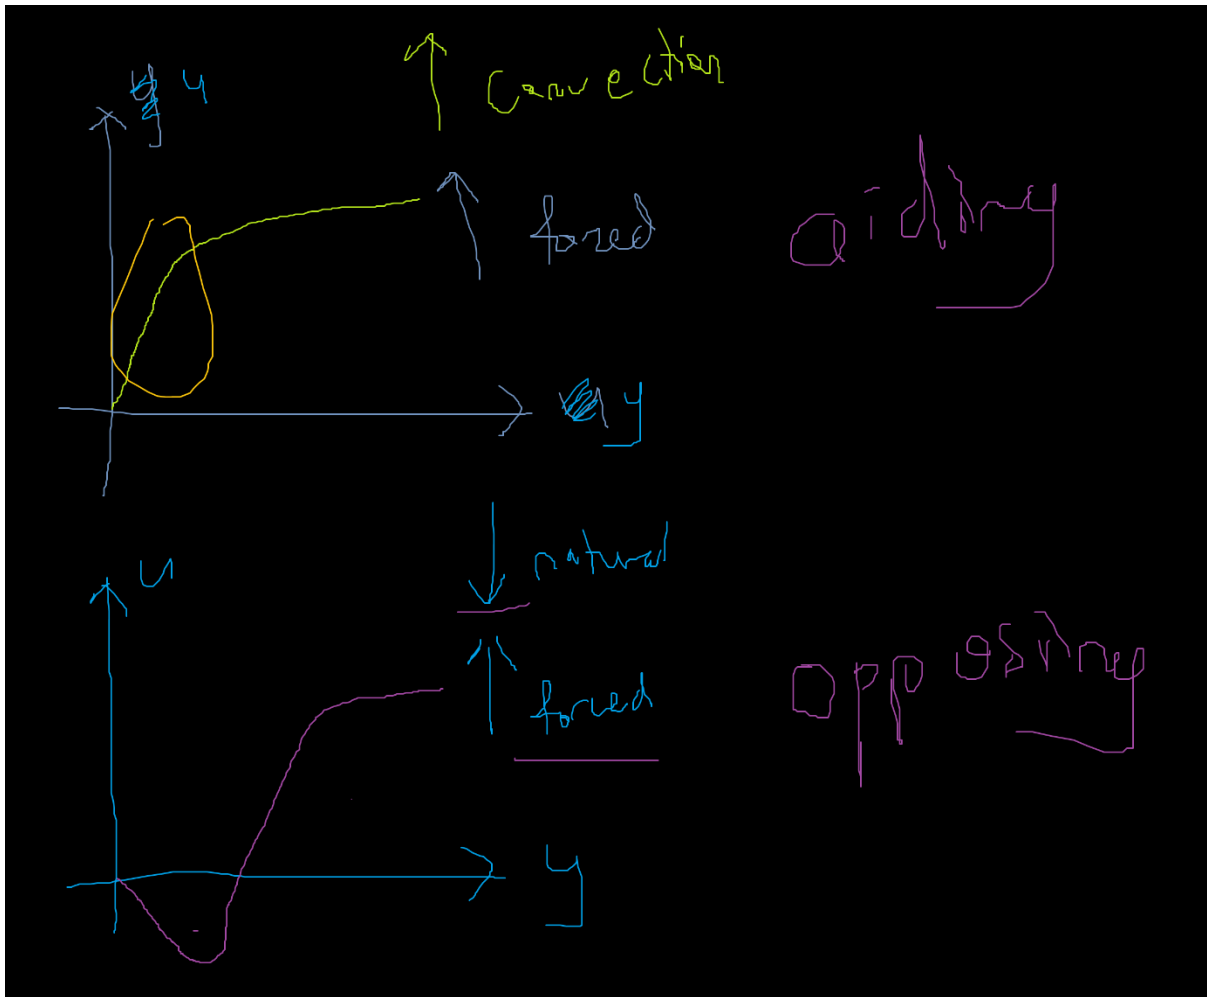 u
Convection
forced
aiding
y
natural
u
forced
opposing
y